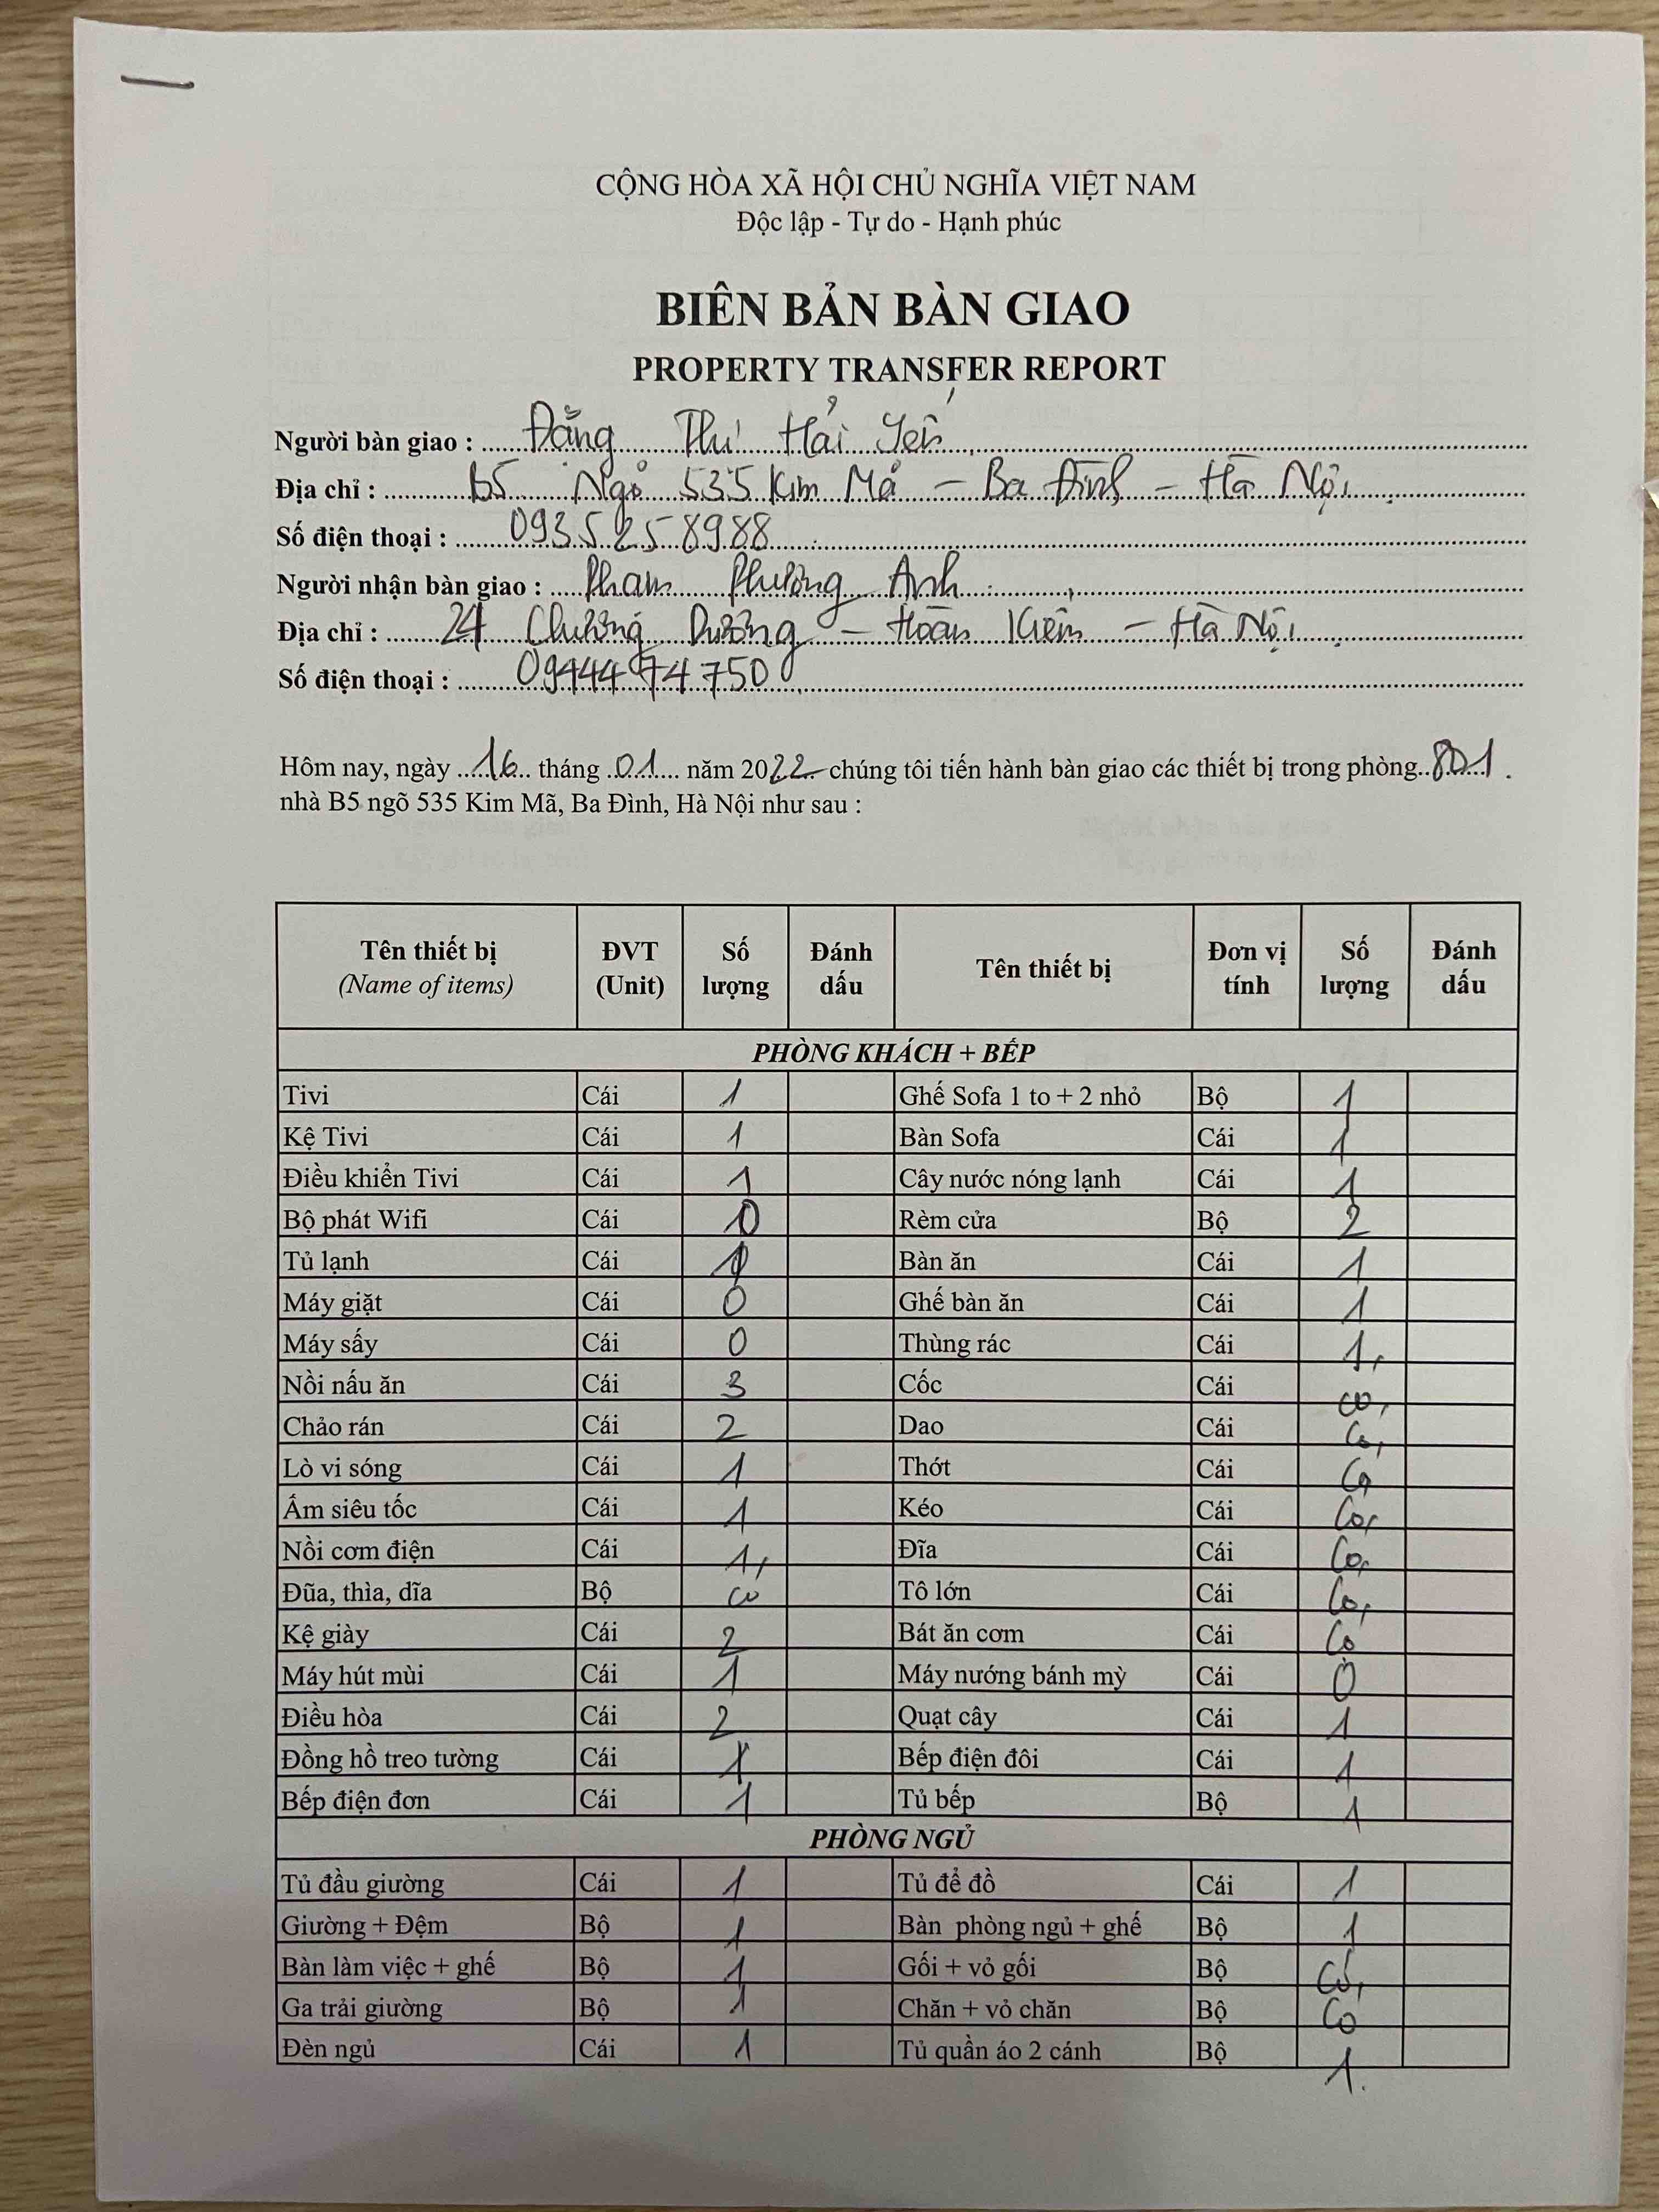 CỘNG HÒA XÃ HỘI CHỦ NGHĨA VIỆT NAM
Độc lập - Tự do - Hạnh phúc
BIÊN BẢN BÀN GIAO
PROPERTY TRANSFER REPORT
Người bàn giao : Đặng Thị Hải Yến
Địa chỉ : B5 Ngõ 535 Kim Mã – Ba Đình – Hà Nội
Số điện thoại : 0935258988
Người nhận bàn giao : Phạm Phương Anh
Địa chỉ : 24 Chương Dương – Hoàn Kiếm – Hà Nội
Số điện thoại : 0944474750
Hôm nay, ngày 16 tháng 01 năm 2022 chúng tôi tiến hành bàn giao các thiết bị trong phòng 801.
nhà B5 ngõ 535 Kim Mã, Ba Đình, Hà Nội như sau :
Tên thiết bị (Name of items) ĐVT (Unit) Số lượng Đánh dấu Tên thiết bị Đơn vị tính Số lượng Đánh dấu
PHÒNG KHÁCH + BẾP
Tivi Cái 1 Ghế Sofa 1 to + 2 nhỏ Bộ 1
Kệ Tivi Cái 1 Bàn Sofa Cái 1
Điều khiển Tivi Cái 1 Cây nước nóng lạnh Cái 1
Bộ phát Wifi Cái Rèm cửa Bộ 2
Tủ lạnh Cái Bàn ăn Cái 1
Máy giặt Cái 0 Ghế bàn ăn Cái 1
Máy sấy Cái 0 Thùng rác Cái 1,
Nồi nấu ăn Cái 3 Cốc Cái có,
Chảo rán Cái 2 Dao Cái Có,
Lò vi sóng Cái 1 Thớt Cái Có
Ấm siêu tốc Cái 1 Kéo Cái Có,
Nồi cơm điện Cái 1, Đĩa Cái Có,
Đũa, thìa, dĩa Bộ có Tô lớn Cái Có,
Kệ giày Cái 2 Bát ăn cơm Cái Có
Máy hút mùi Cái 1 Máy nướng bánh mỳ Cái 0
Điều hòa Cái 2 Quạt cây Cái 1
Đồng hồ treo tường Cái 1 Bếp điện đôi Cái 1
Bếp điện đơn Cái 1 Tủ bếp Bộ 1
PHÒNG NGỦ
Tủ đầu giường Cái 1 Tủ để đồ Cái 1
Giường + Đệm Bộ 1 Bàn phòng ngủ + ghế Bộ 1
Bàn làm việc + ghế Bộ 1 Gối + vỏ gối Bộ Có,
Ga trải giường Bộ 1 Chăn + vỏ chăn Bộ Có
Đèn ngủ Cái 1 Tủ quần áo 2 cánh Bộ 1.